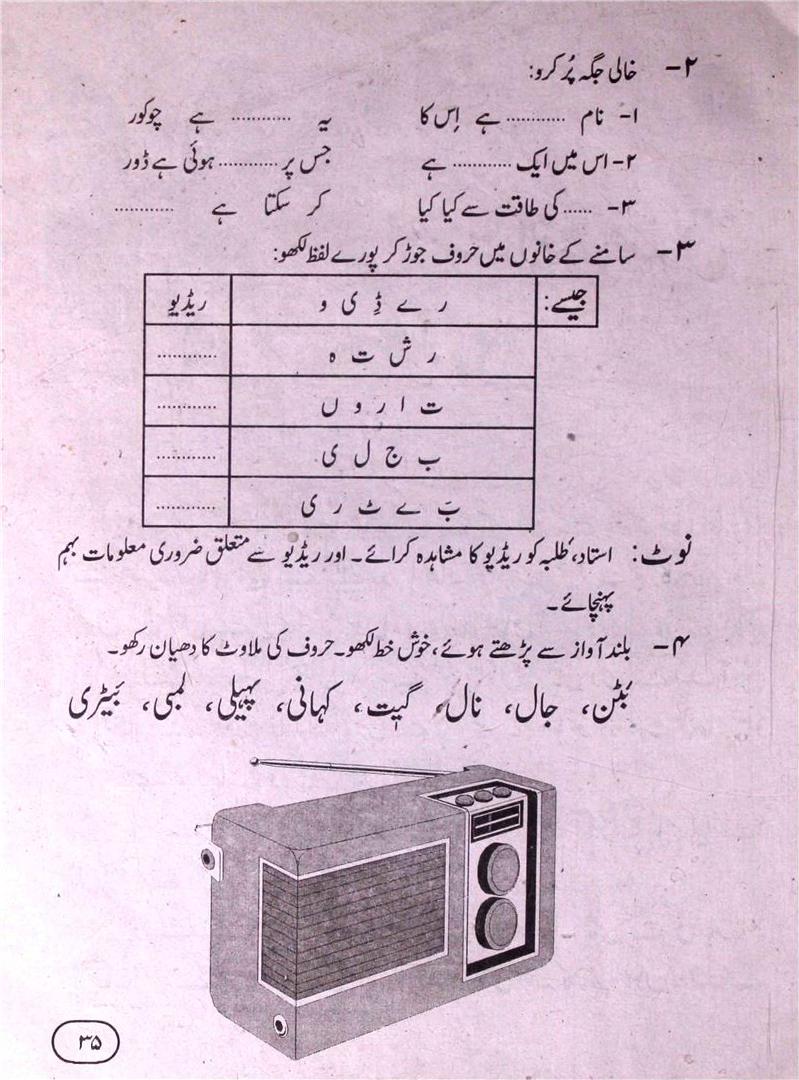 ۲- خالی جگہ پُر کرو:
۱- نام ............ ہے اِس کا یہ ............ ہے چوکور
۲- اس میں ایک ............ ہے جس پر ............ ہوئی ہے ڈور
۳- ...... کی طاقت سے کیا کیا کر سکتا ہے ............
۳- سامنے کے خانوں میں حروف جوڑ کر پورے لفظ لکھو:
جیسے: ر ے ڈِ ی و ریڈیو
ر ش ت ہ ............
ت ا ر و ں ............
ب ج ل ی ............
بَ ے ٹ ر ی ............
نوٹ: استاد، طلبہ کو ریڈیو کا مشاہدہ کرائے۔ اور ریڈیو سے متعلق ضروری معلومات بہم
پہنچائے۔
۴- بلند آواز سے پڑھتے ہوئے، خوش خط لکھو۔ حروف کی ملاوٹ کا دھیان رکھو۔
بٹن، جال، نال، گیت، کہانی، پہیلی، لمبی، بَیٹری
۳۵